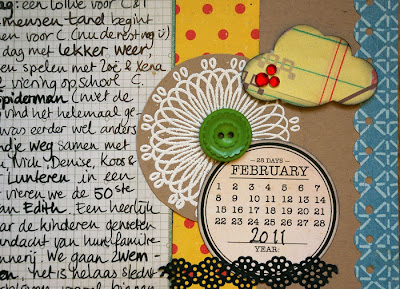 ag: een lolly voor C & I
mensen tand begint
voor C (nu de rest nog ü)
dag met lekker weer,
en spelen met Zoë & Xena
viering op school C.
spiderman (met de
vind het helemaal ge-
was eerder wel anders
ndje weg samen met
Nick Denise, Koos &
Lunteren in een
vieren we de 50 ste
an Edith. Een heerlijk
ar de kinderen genoten
andacht van hun familie
nnering. We gaan zwem-
en, het is helaas slecht
binnen
- 28 DAYS -
FEBRUARY
1 2 3 4 5 6 7
8 9 10 11 12 13 14
15 16 17 18 19 20 21
22 23 24 25 26 27 28
2011
YEAR: